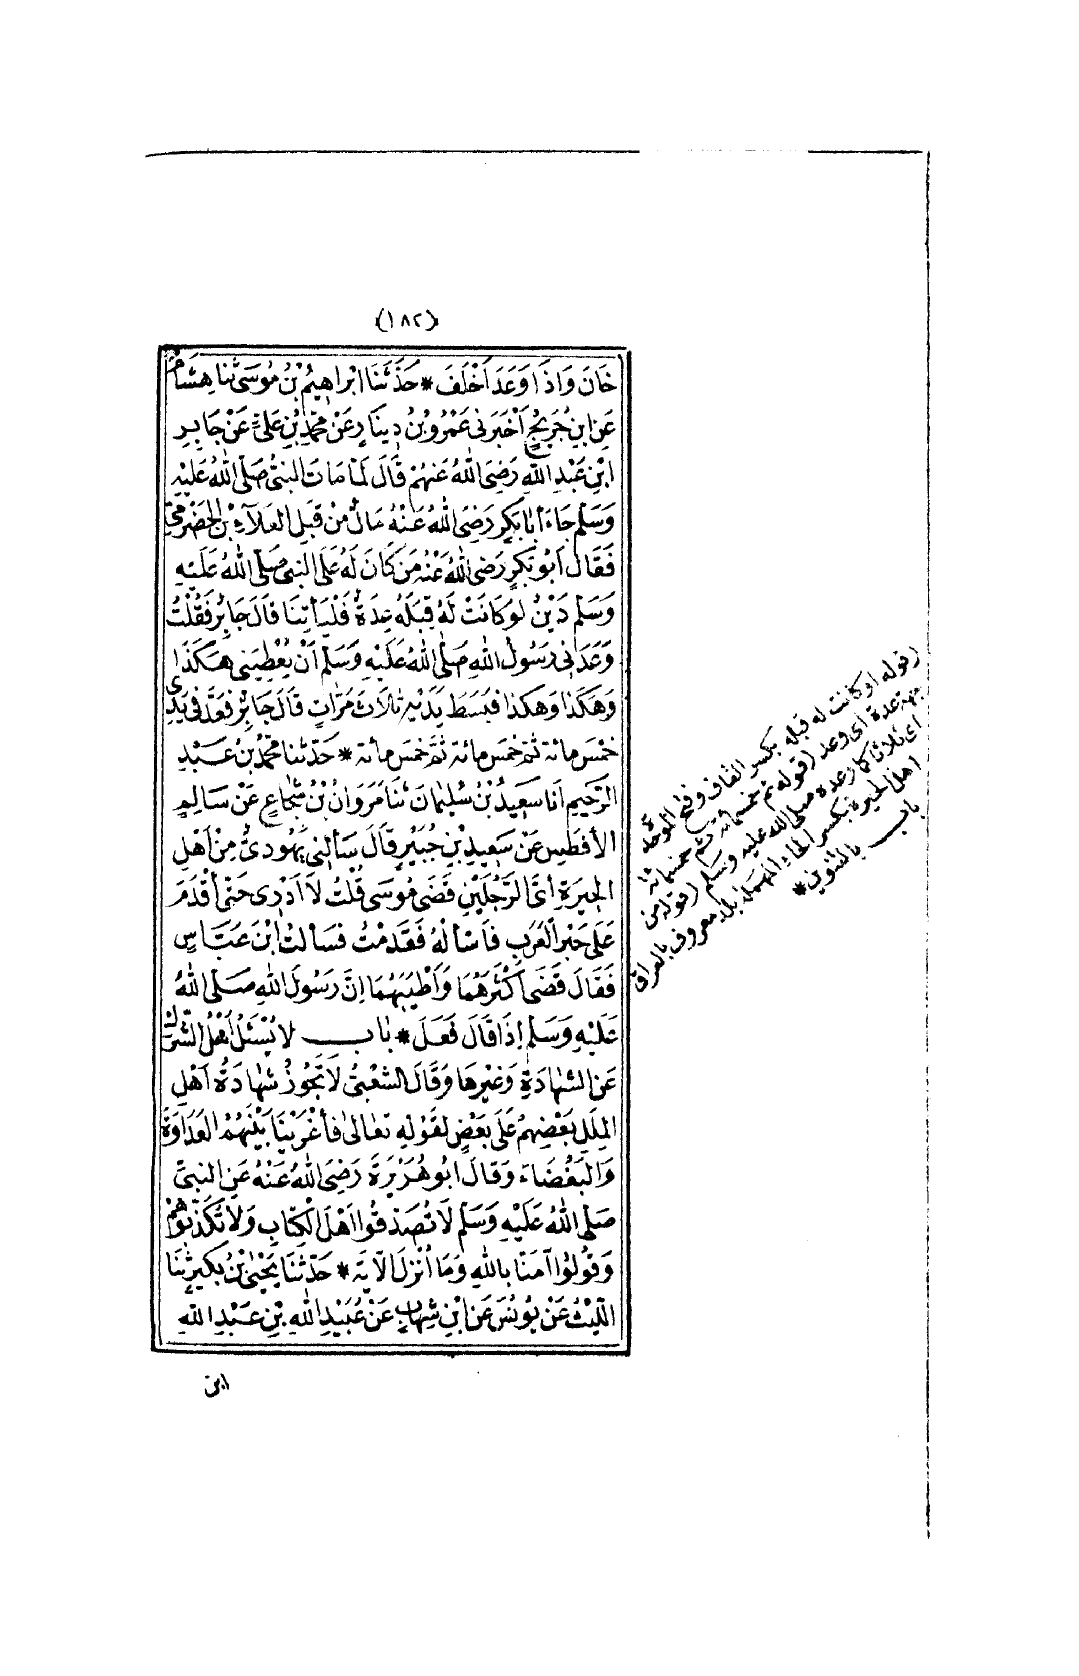 (١٨٢)
خَانَ وَاِذَا وَعَدَ اَخْلَفَ * حَدَّثَنَا اِبْراهِيمُ بْنُ مُوسَى ثنا هِشَامٌ
عَنِ ابْنِ جُرَيْجٍ اَخْبَرَنِي عَمْرُو بْنُ دِينَارٍ عَنْ مُحَمَّدِ بْنِ عَلِيٍّ عَنْ جَابِرِ
ابْنِ عَبْدِ اللهِ رَضِيَ اللهُ عَنْهُمْ قَالَ لَمَّا مَاتَ النبيُّ صَلَّى اللهُ عَلَيْهِ
وَسَلَّمَ جَاءَ اَبَا بَكْرٍ رَضِيَ اللهُ عَنْهُ مَالٌ مِنْ قِبَلِ العَلَآءِ بْنِ الحَضْرَمِيِّ
فَقَالَ اَبُو بَكْرٍ رَضِيَ اللهُ عَنْهُ مَنْ كَانَ لَهُ عَلَى النبيِّ صَلَّى اللهُ عَلَيْهِ
وَسَلَّمَ دَيْنٌ اَوْ كَانَتْ لَهُ قِبَلَهُ عِدَةٌ فَلْيَأْتِنَا قَالَ جَابِرٌ فَقُلْتُ
وَعَدَنِي رَسُولُ اللهِ صَلَّى اللهُ عَلَيْهِ وَسَلَّمَ اَنْ يُعْطِيَنِي هٰكَذَا
وَهٰكَذَا وَهٰكَذا فبَسَطَ يَدَيْهِ ثَلَاثَ مَرَّاتٍ قَالَ جَابِرٌ فَعَدَّ فِي يَدِي
خَمْسَ مِائة ثُمَّ خَمْسَ مِائة ثُمَّ خَمْسَ مِائَة * حَدَّثَنا مُحَمَّدُ بْنُ عَبْدِ
الرَّحِيمِ اَنَا سَعِيدُ بْنُ سُلَيْمَانَ ثنا مَرْوَانُ بْنُ شُجَاعٍ عَنْ سَالِمٍ
الأَفْطَسِ عَنْ سَعِيدِ بْنِ جُبَيْرٍ قَالَ سَأَلَنِي يَهُودِيٌّ مِنْ اَهْلِ
الحِيرَةِ اَيَّ الاَجَلَيْنِ قَضَى مُوسَى قُلْتُ لاَ اَدْرِي حَتَّى اَقْدَمَ
عَلَى حَبْرِ العَرَبِ فَاَسْأَلَهُ فَقَدِمْتُ فَسَأَلْتُ ابْنَ عَبَّاسٍ
فَقَالَ قَضَى اَكْثَرَهُمَا وَاَطْيَبَهُمَا اِنَّ رَسُولَ اللهِ صَلَّى اللهُ
عَلَيْهِ وَسَلَّمَ اِذَا قَالَ فَعَلَ * باب لاَ يُسْئَلُ اَهْلُ الشِّرْكِ
عَنِ الشَّهَادَةِ وَغَيْرِهَا وَقَالَ الشَّعْبِيُّ لاَ تَجُوزُ شَهَادَةُ اَهْلِ
المِلَلِ بَعْضِهِمْ عَلَى بَعْضٍ لِقَوْلِهِ تَعَالَى فَاَغْرَيْنَا بَيْنَهُمُ العَدَاوَةَ
وَالبَغْضَاءَ وَقَالَ اَبُو هُرَيْرَةَ رَضِيَ اللهُ عَنْهُ عَنِ النبيِّ
صَلَّى اللهُ عَلَيْهِ وَسَلَّمَ لاَ تُصَدِّقُوا اَهْلَ الكِتَابِ وَلاَ تُكَذِّبُوهُمْ
وَقُولُوا آمَنَّا بِاللهِ وَمَا اُنْزِلَ الآيَةَ * حَدَّثَنَا يَحْيَى بْنُ بُكَيْرٍ ثَنَا
اللَّيْثُ عَنْ يُونُسَ عَنِ ابْنِ شِهَابٍ عَنْ عُبَيْدِ اللهِ بْنِ عَبْدِ اللهِ
ابن
(قوله او كانت له قبله بكسر القاف وفتح الموحدة
جهة عدة أي وعد (قوله ثم خمسمائة ثم خمسمائة
اي ثلاثا كما وعده صلى الله عليه وسلم (قوله من
اهل الحيرة بكسر الحاء المهملة بلد معروف بالعراق
باب بالتنوين *